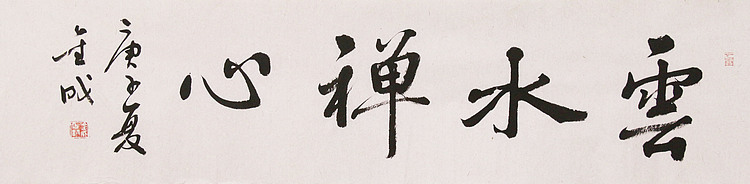 雲水禅心
庚子夏
金成